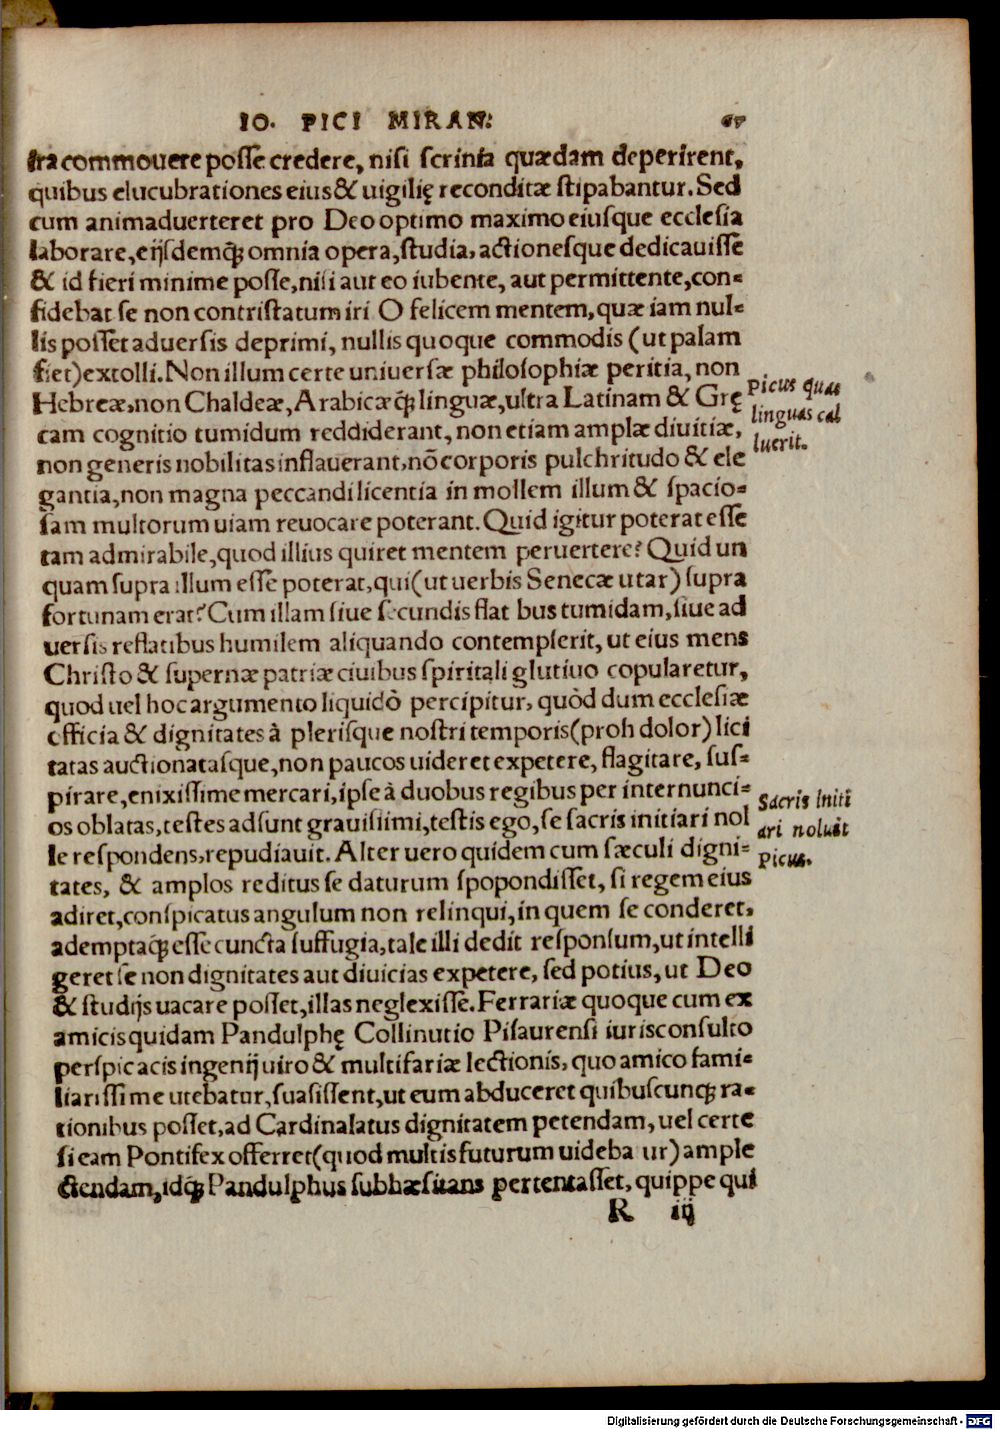 IO. PICI MIRAN:
tra commouere posse credere, nisi scrinia quædam deperirent,
quibus elucubrationes eius & uigilię reconditæ stipabantur. Sed
cum animaduerteret pro Deo optimo maximo eiusque ecclesia
laborare, eijsdemq́; omnia opera, studia, actionesque dedicauisse
& id fieri minime posse, nisi aut eo iubente, aut permittente, con=
fidebat se non contristatum iri O felicem mentem, quæ iam nul=
lis posset aduersis deprimi, nullis quoque commodis (ut palam
fiet) extolli. Non illum certe uniuersæ philosophiæ peritia, non
Hebreæ, non Chaldeæ, Arabicæq́; linguæ, ultra Latinam & Grę
cam cognitio tumidum reddiderant, non etiam amplæ diuitiæ,
non generis nobilitas inflauerant, nõ corporis pulchritudo & ele
gantia, non magna peccandi licentia in mollem illum & spacio=
sam multorum uiam reuocare poterant. Quid igitur poterat esse
tam admirabile, quod illius quiret mentem peruertere? Quid un
quam supra illum esse poterat, qui (ut uerbis Senecæ utar) supra
fortunam erat? Cum illam siue secundis flat bus tumidam, siue ad
uersis reflatibus humilem aliquando contempserit, ut eius mens
Christo & supernæ patriæ ciuibus spiritali glutiuo copularetur,
quod uel hoc argumento liquidò percipitur, quòd dum ecclesiæ
officia & dignitates à plerisque nostri temporis (proh dolor) lici
tatas auctionatasque, non paucos uideret expetere, flagitare, sus=
pirare, enixissime mercari, ipse à duobus regibus per internunci=
os oblatas, testes adsunt grauissimi, testis ego, se sacris initiari nol
le respondens, repudiauit. Alter uero quidem cum sæculi digni=
tates, & amplos reditus se daturum spopondisset, si regem eius
adiret, conspicatus angulum non relinqui, in quem se conderet,
ademptaq́; esse cuncta suffugia, tale illi dedit responsum, ut intelli
geret se non dignitates aut diuicias expetere, sed potius, ut Deo
& studijs uacare posset, illas neglexisse. Ferrariæ quoque cum ex
amicis quidam Pandulphę Collinutio Pisaurensi iurisconsulto
perspicacis ingenij uiro & multifariæ lectionis, quo amico fami=
liarissime utebatur, suasissent, ut eum abduceret quibuscunq́; ra=
tionibus posset, ad Cardinalatus dignitatem petendam, uel certe
si eam Pontifex offerret (quod multis futurum uideba ur) ample
ctendam, idq́; Pandulphus subhæsitans pertentasset, quippe qui
R iij
Picus quas
linguas cal
luerit.
Sacris initi
ari noluit
Picus.
Digitalisierung gefördert durch die Deutsche Forschungsgemeinschaft - DFG